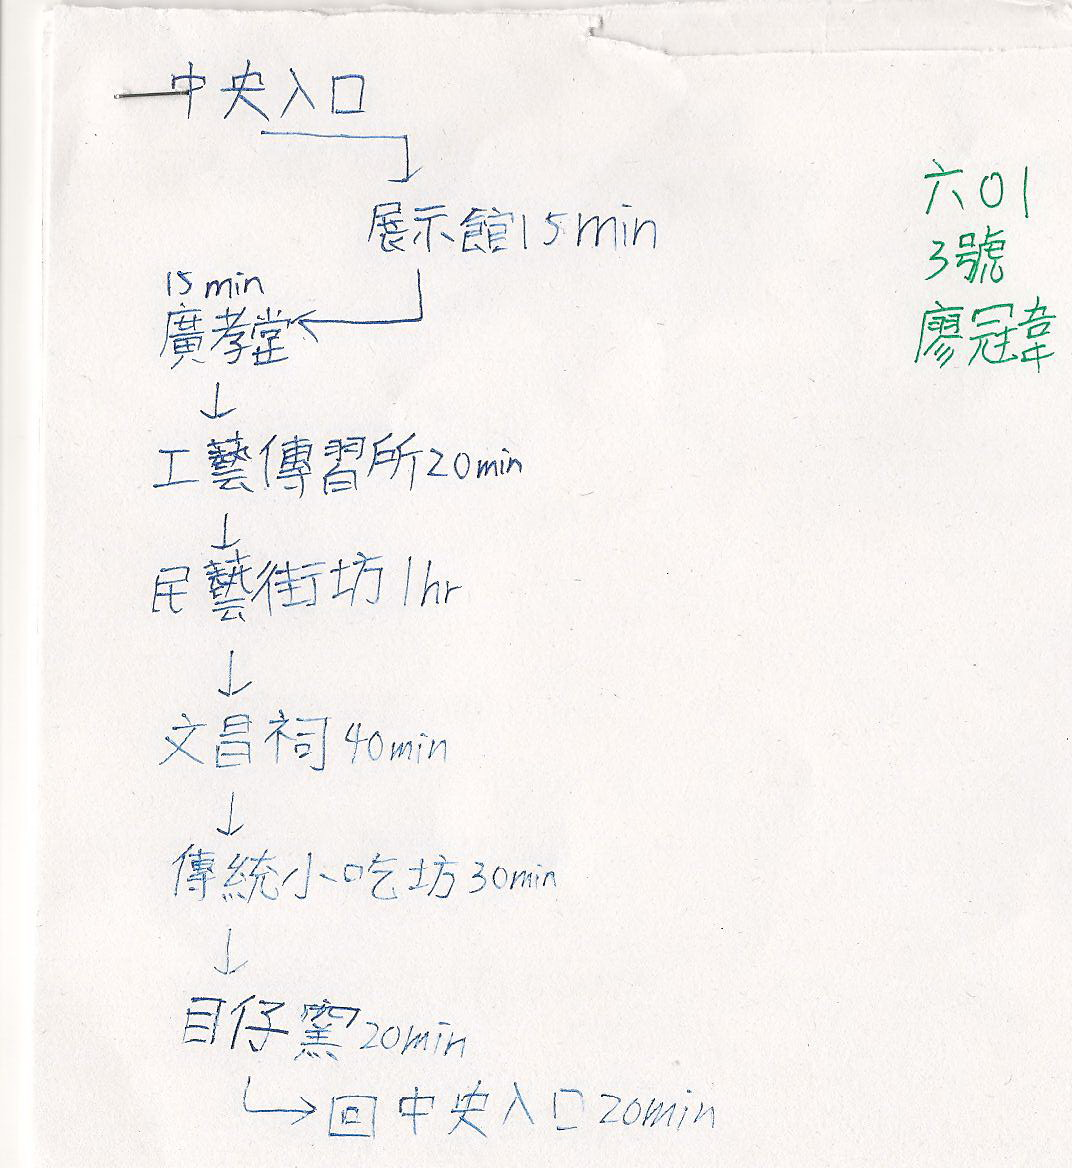 中央入口
展示館15min
15min
廣孝堂
工藝傳習所20min
民藝街坊1hr
文昌祠40min
傳統小吃坊30min
目仔窯20min
回中央入口20min
六01
3號
廖冠韋